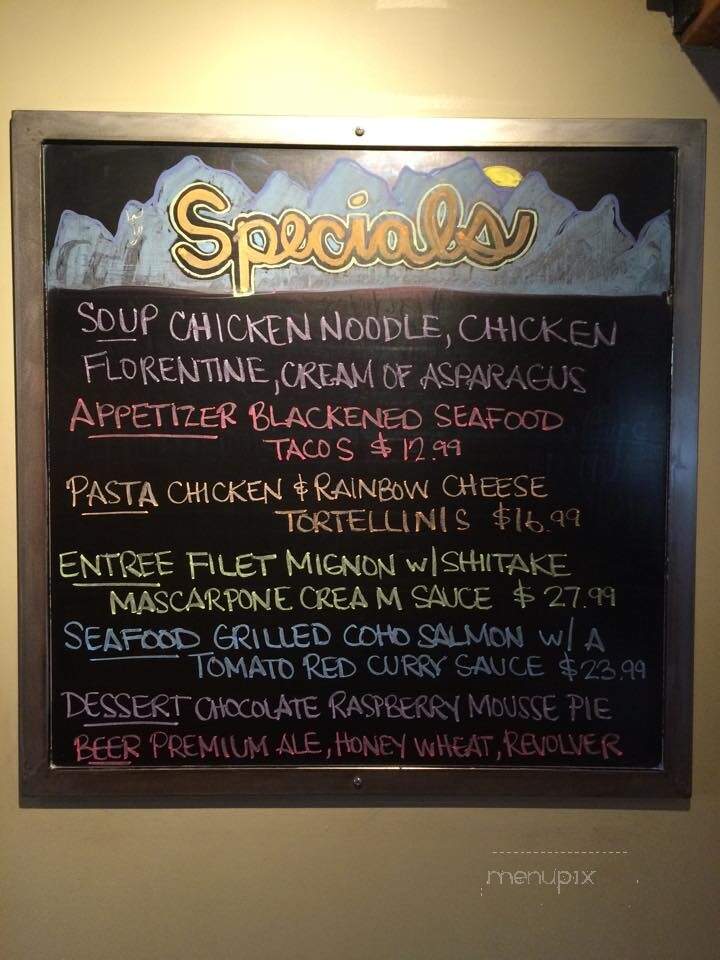 Specials
SOUP CHICKEN NOODLE, CHICKEN
FLORENTINE, CREAM OF ASPARAGUS
APPETIZER BLACKENED SEAFOOD
TACOS $12.99
PASTA CHICKEN & RAINBOW CHEESE
TORTELLINIS $16.99
ENTREE FILET MIGNON W/SHIITAKE
MASCARPONE CREAM SAUCE $27.99
SEAFOOD GRILLED COHO SALMON W/ A
TOMATO RED CURRY SAUCE $23.99
DESSERT CHOCOLATE RASPBERRY MOUSSE PIE
BEER PREMIUM ALE, HONEY WHEAT, REVOLVER
menupix